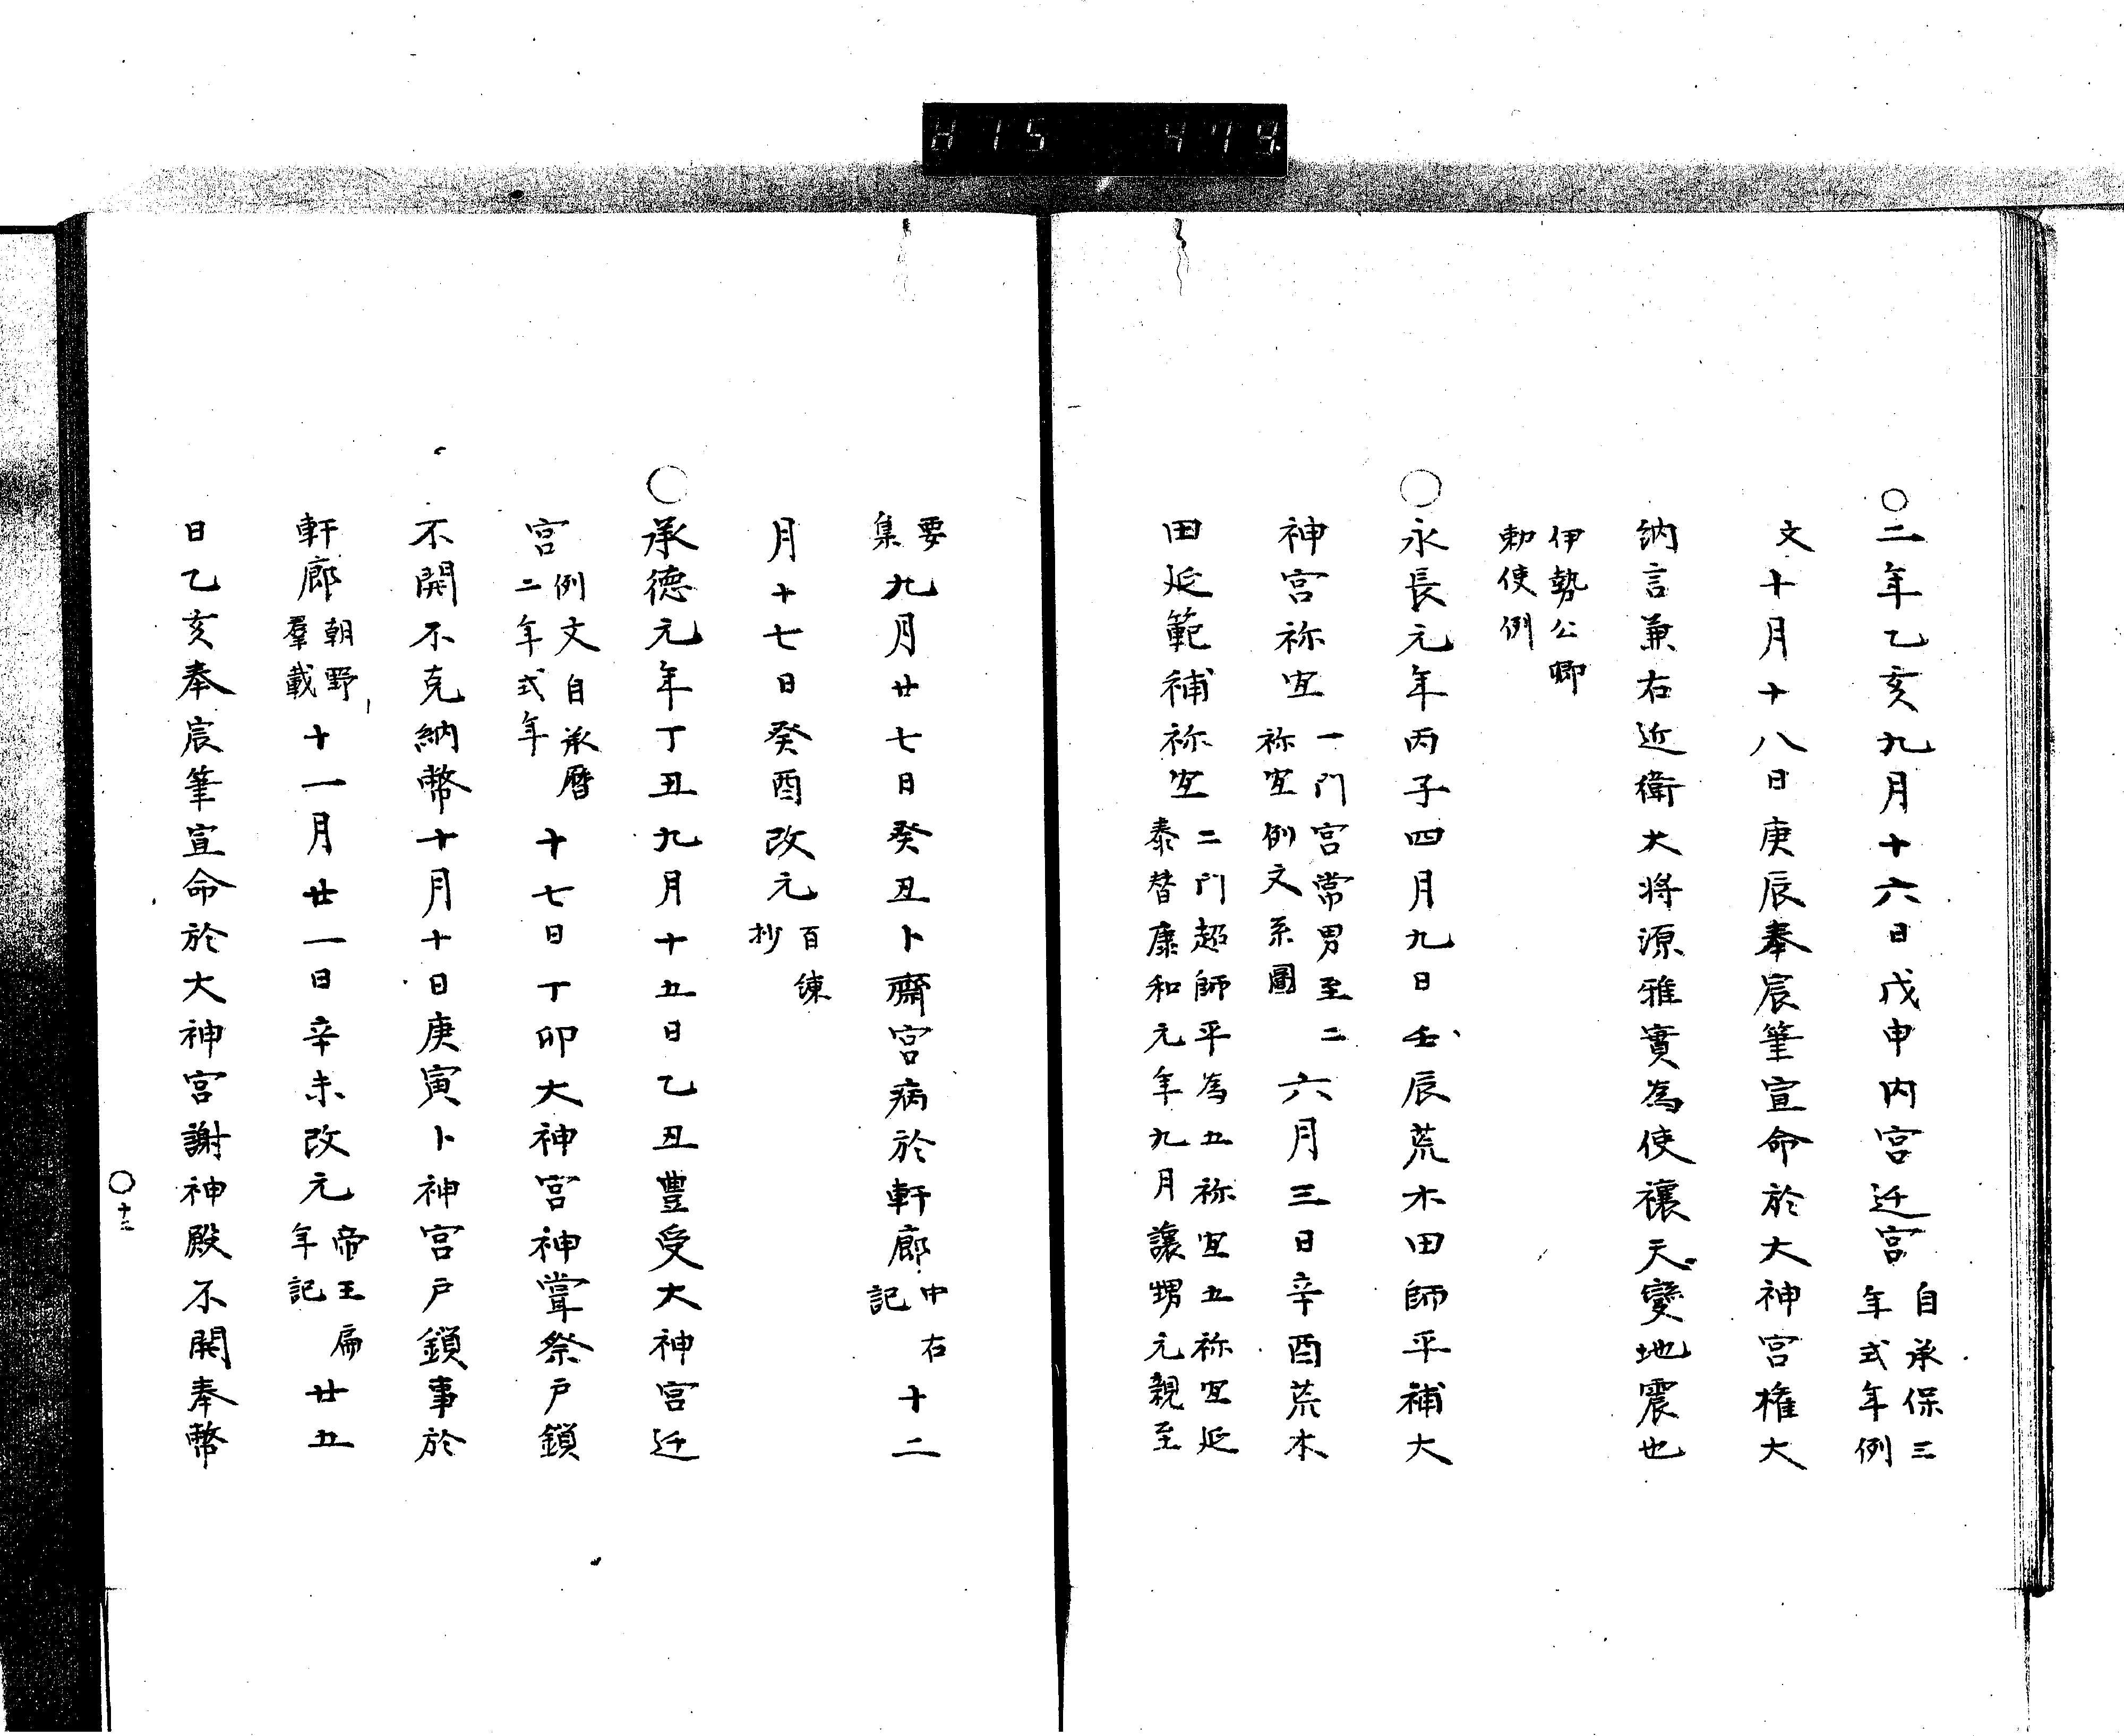 815 474
○二年乙亥九月十六日戊申内宮迁宮自承保三年式年例
文十月十八日庚辰奉宸筆宣命於大神宮権大
納言兼右近衛大将源雅實為使禳天變地震也
伊勢公卿勅使例
○永長元年丙子四月九日壬辰荒木田師平補大
神宮祢宜一門宮常男至二祢宜例文系圖六月三日辛酉荒木
田延範補祢宜二門超師平為五祢宜五祢宜延泰替康和元年九月讓甥元親至
要集九月廿七日癸丑卜齋宮病於軒廊中右記十二
月十七日癸酉改元百鍊抄
○承德元年丁丑九月十五日乙丑豊受大神宮迁
宮例文自承暦二年式年十七日丁卯大神宮神甞祭戸鎖
不開不克納幣十月十日庚寅卜神宮戸鎖事於
軒廊朝野羣載十一月廿一日辛未改元帝王扁年記廿五
日乙亥奉宸筆宣命於大神宮謝神殿不開奉幣